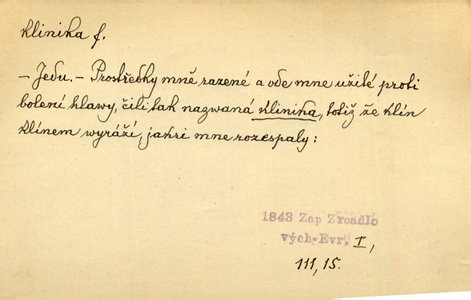 Klinika f.
— Jedu. — Prostředky mně razené a ode mne užité proti
bolení hlawy, čili tak nazwaná Klinika, totiž že klín
klínem wyráží, jaksi mne rozespaly:
1843 Zap Zrcadlo
vých-Evr. I,
111, 15.